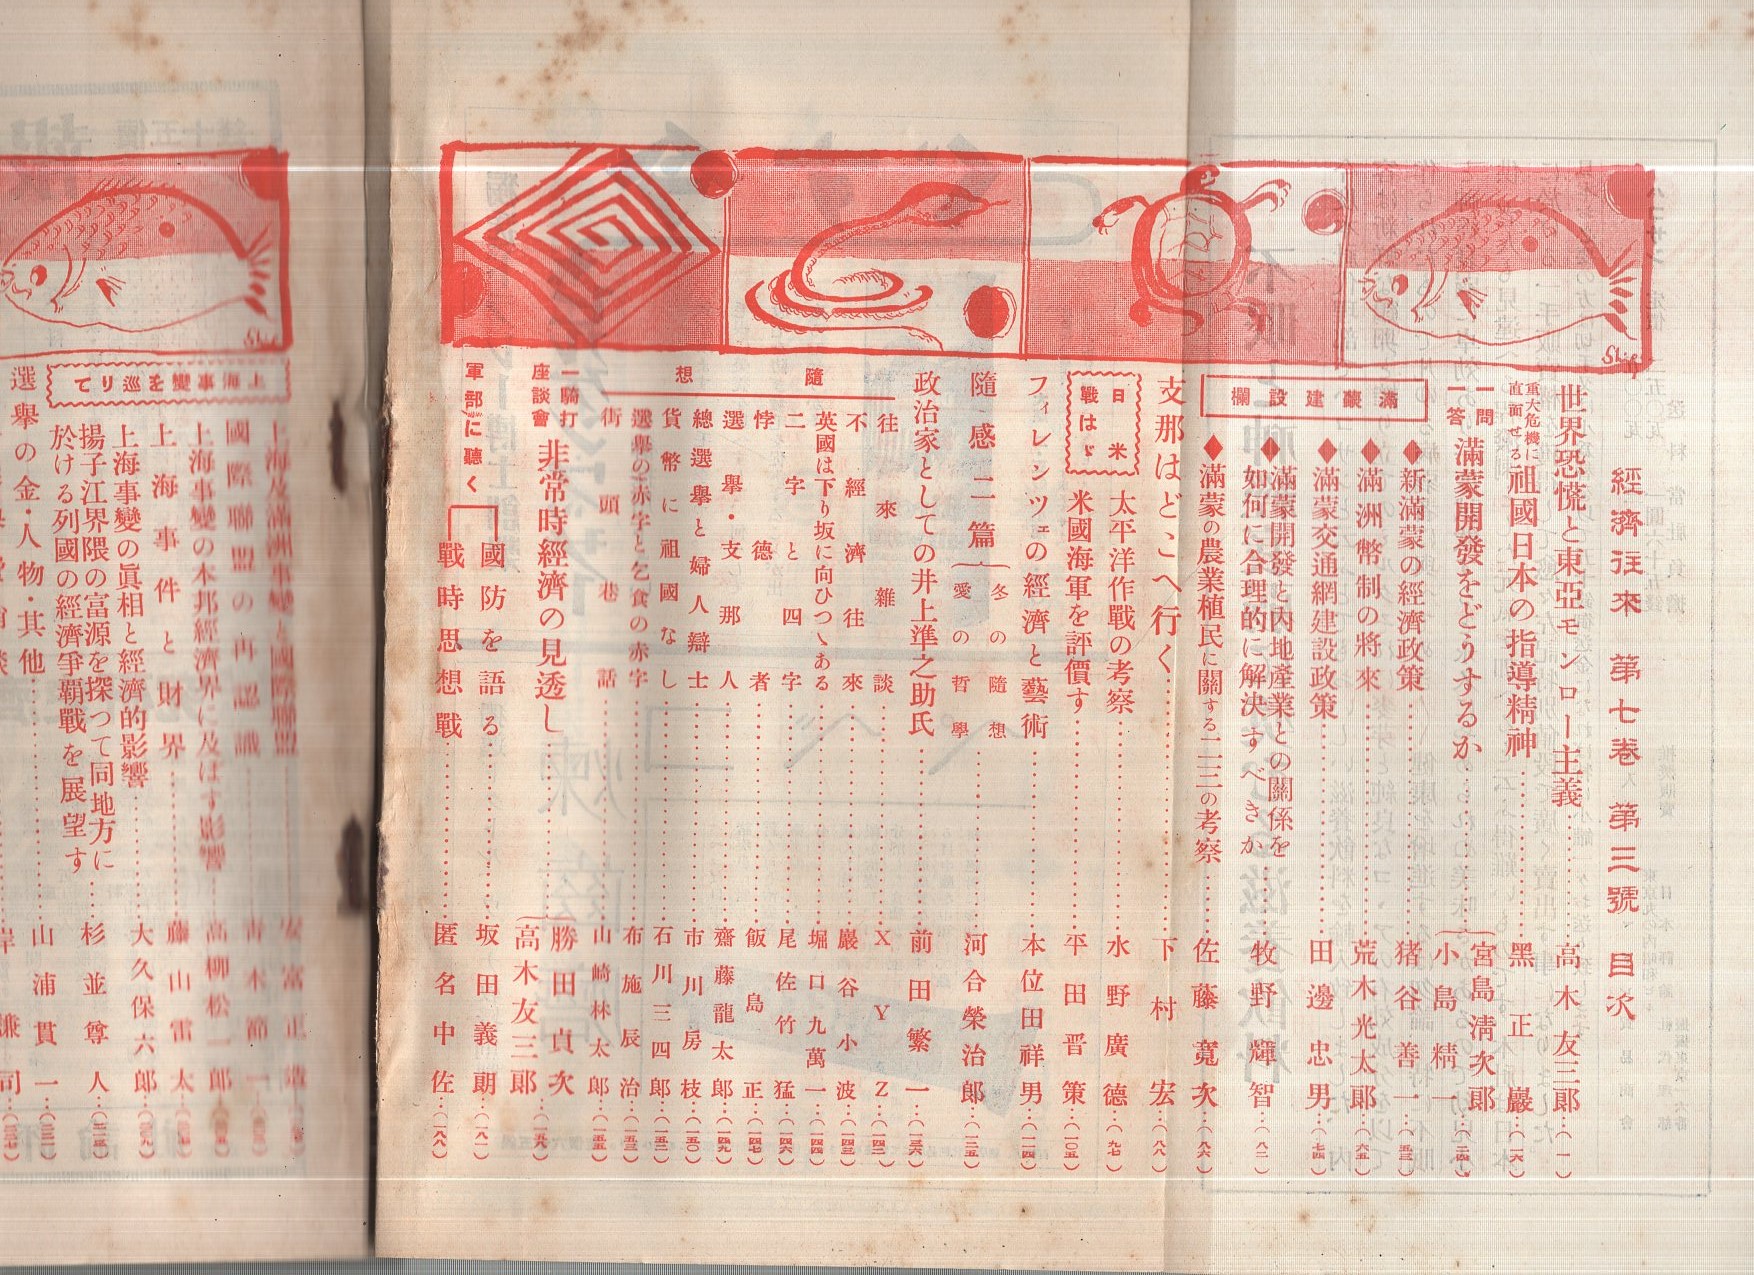 經濟往來 第七卷、第三號、目次
世界恐慌と東亞モンロー主義 高木友三郎 (一)
重大危機に直面せる 祖國日本の指導精神 黑正巖 (一六)
一問一答 滿蒙開發をどうするか 宮島淸次郎 小島精一
滿蒙建設欄
◆新滿蒙の經濟政策 猪谷善一
◆滿洲幣制の將來 荒木光太郎 (六五)
◆滿蒙交通網建設政策 田邊忠男 (七四)
◆滿蒙開發と內地產業との關係を如何に合理的に解決すべきか 牧野輝智 (八二)
◆滿蒙の農業植民に關する二三の考察 佐藤寬次 (八六)
支那はどこへ行く 下村宏 (八八)
日米戰はゞ
太平洋作戰の考察 水野廣德 (九七)
米國海軍を評價す 平田晋策 (一〇五)
フィレンツェの經濟と藝術 本位田祥男 (一一四)
隨感二篇 冬の隨想 愛の哲學 河合榮治郎 (一三五)
政治家としての井上準之助氏 前田繁一 (一三六)
隨想
往來雜談 XYZ (一四二)
不經濟往來 巖谷小波 (一四三)
英國は下り坂に向ひつゝある 堀口九萬一 (一四四)
二字と四字 尾佐竹猛 (一四六)
悖德者 飯島正 (一四七)
選擧・支那人 齋藤龍太郎 (一四九)
總選擧と婦人辯士 市川房枝 (一五〇)
貨幣に祖國なし 石川三四郎 (一五二)
選擧の赤字と乞食の赤字 布施辰治 (一五三)
街頭巷話 山崎林太郎 (一五五)
一騎打座談會 非常時經濟の見透し 勝田貞次 高木友三郎
軍部に聽く
國防を語る 坂田義朗 (一八一)
戰時思想戰 匿名中佐 (一八八)
上海事變を巡りて
上海及滿洲事變と國際聯盟 安富正造
國際聯盟の再認識 靑木節一
上海事變の本邦經濟界に及ぼす影響 高柳松一郎
上海事件と財界 藤山雷太
上海事變の眞相と經濟的影響 大久保六郎
揚子江界隈の富源を探つて同地方に於ける列國の經濟爭覇戰を展望す 杉並尊人
選擧の金・人物・其他 山浦貫一